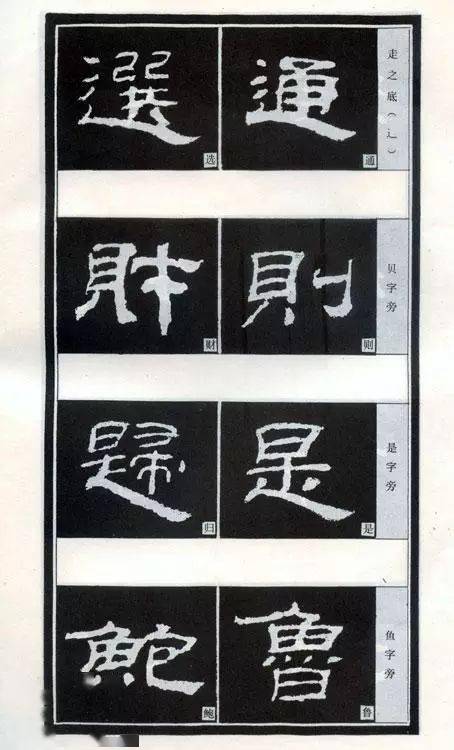 走之底（辶）
通
通
選
选
贝字旁
則
则
財
财
是字旁
是
是
歸
归
鱼字旁
魯
鲁
鮑
鲍